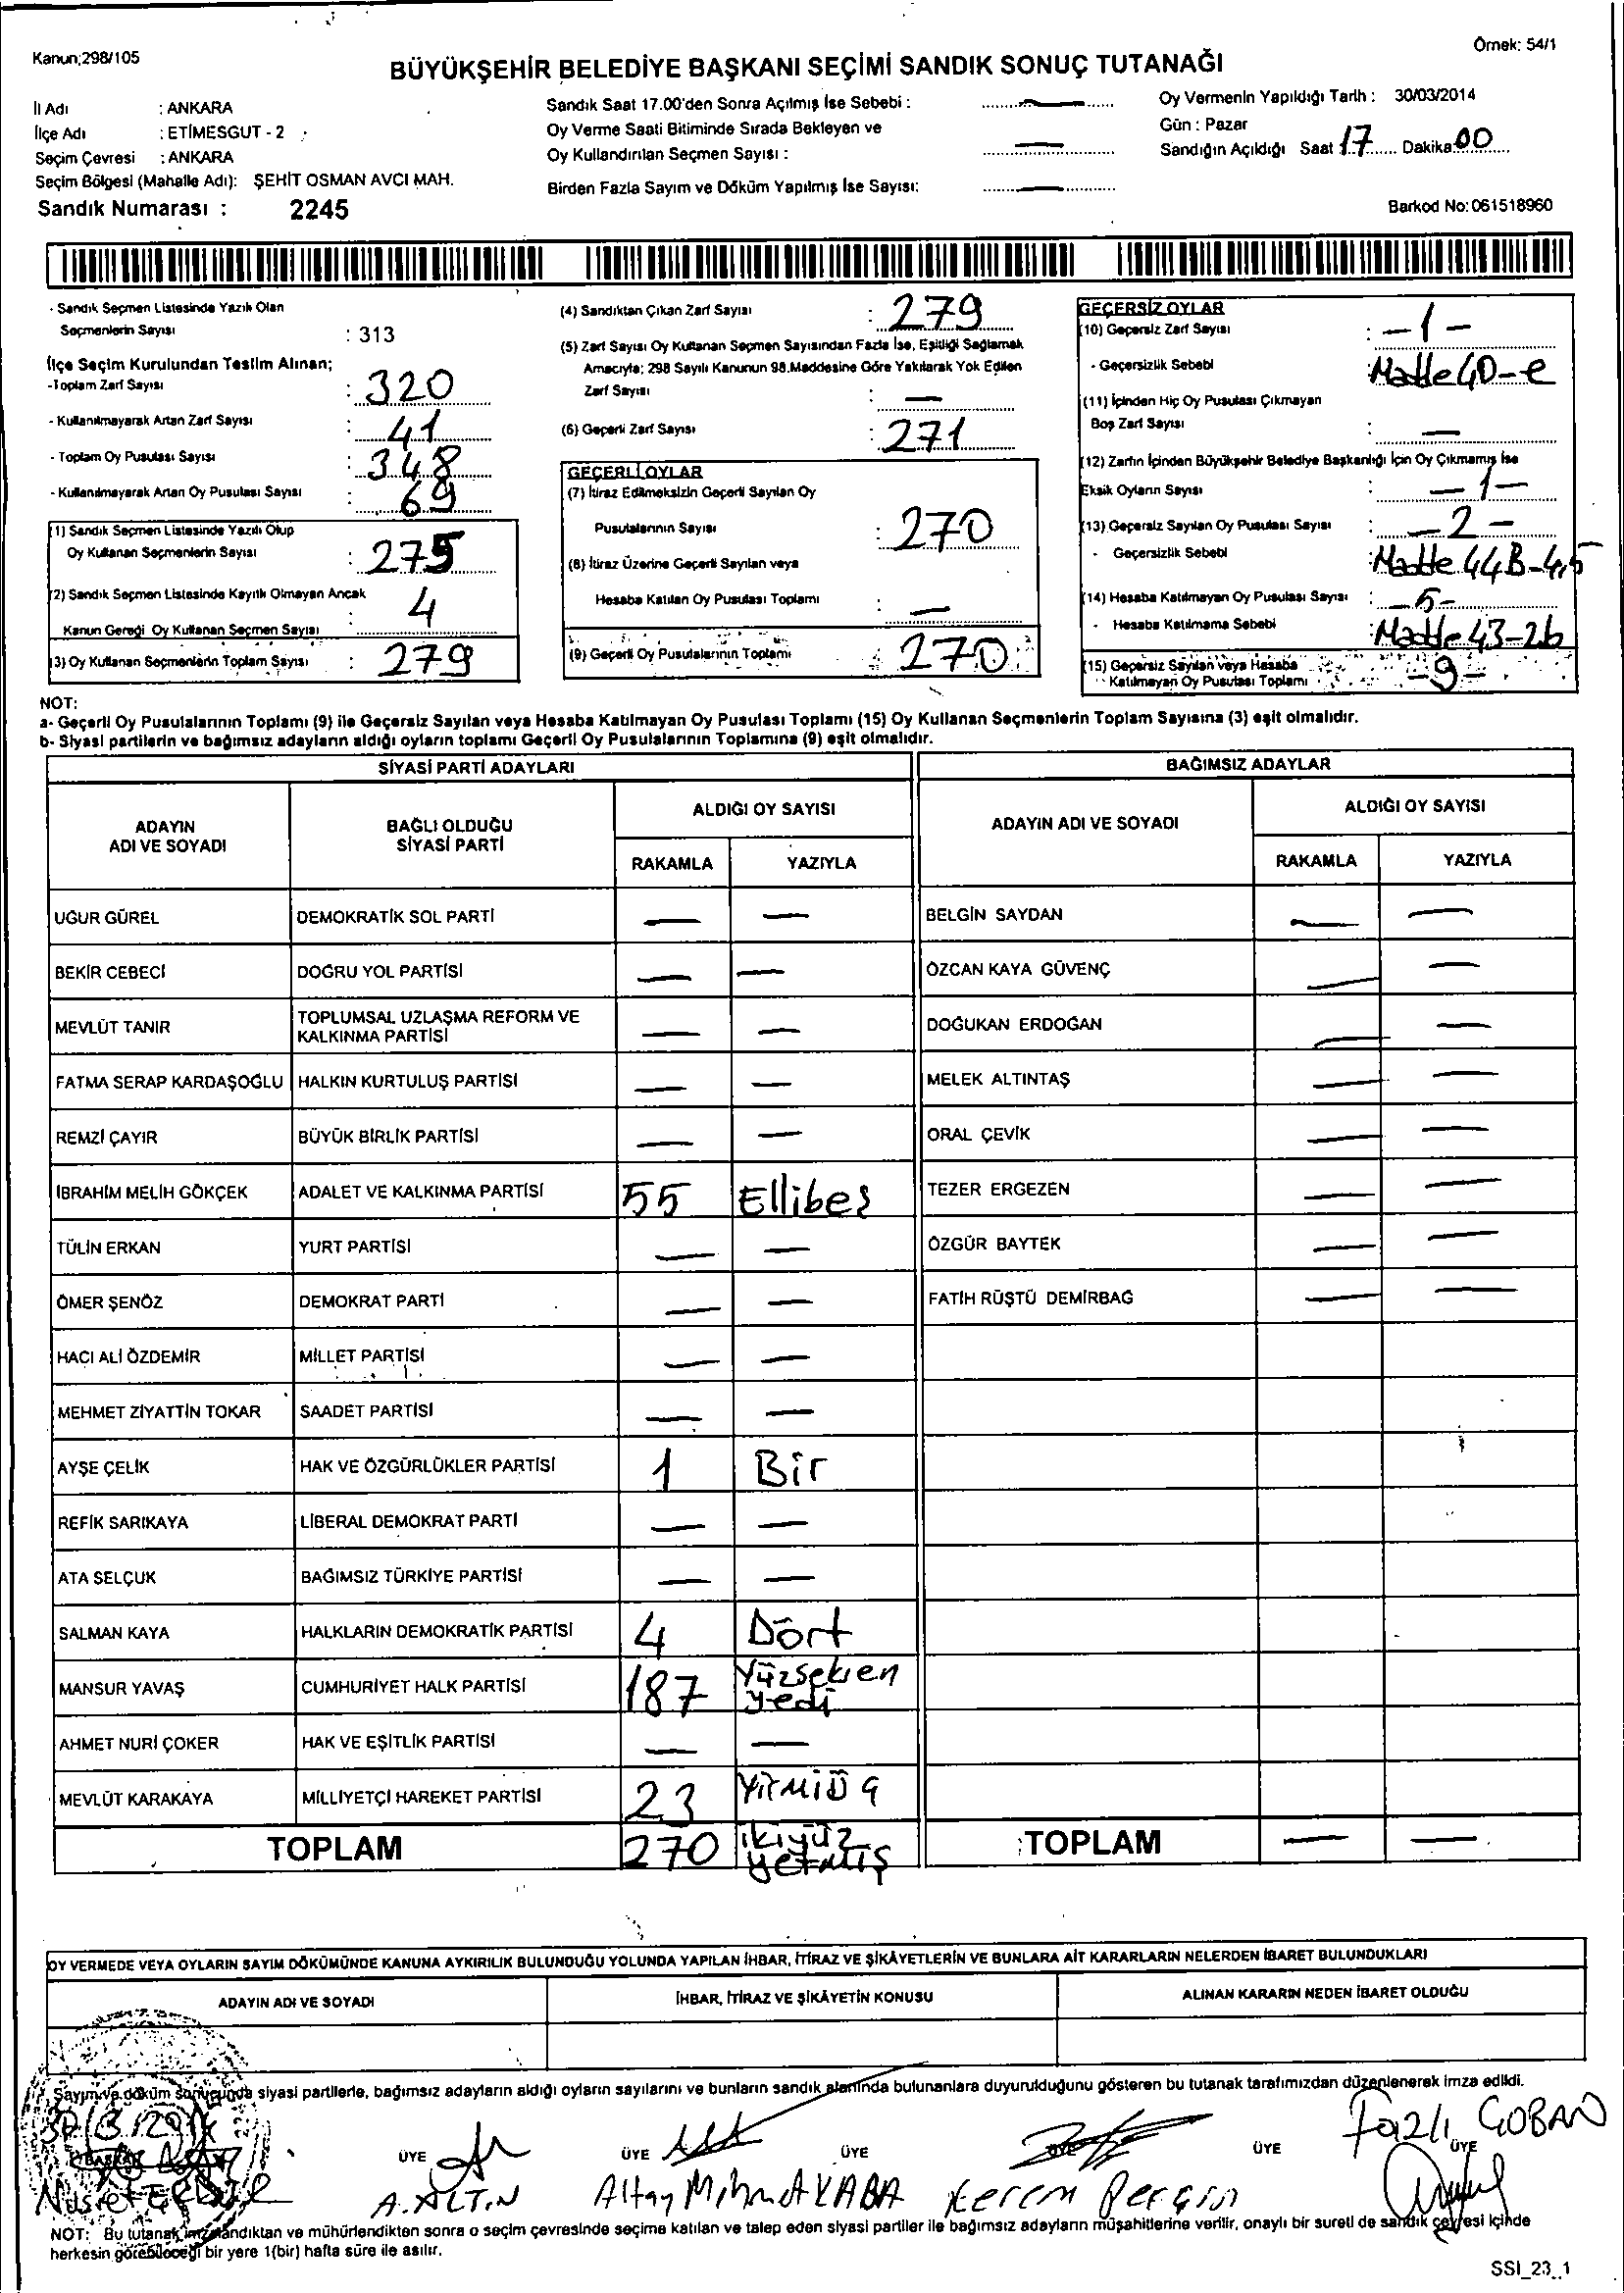 Kanun;298/105
Örnek: 54/1
BÜYÜKŞEHİR BELEDİYE BAŞKANI SEÇİMİ SANDIK SONUÇ TUTANAĞI
İl Adı : ANKARA
İlçe Adı : ETİMESGUT - 2
Seçim Çevresi : ANKARA
Seçim Bölgesi (Mahalle Adı): ŞEHİT OSMAN AVCI MAH.
Sandık Numarası : 2245
Sandık Saat 17.00'den Sonra Açılmış İse Sebebi :
Oy Verme Saati Bitiminde Sırada Bekleyen ve
Oy Kullandırılan Seçmen Sayısı :
Birden Fazla Sayım ve Döküm Yapılmış İse Sayısı:
Oy Vermenin Yapıldığı Tarih : 30/03/2014
Gün : Pazar
Sandığın Açıldığı Saat 17 Dakika 00
Barkod No: 061518960
- Sandık Seçmen Listesinde Yazılı Olan
Seçmenlerin Sayısı : 313
İlçe Seçim Kurulundan Teslim Alınan;
-Toplam Zarf Sayısı : 320
- Kullanılmayarak Artan Zarf Sayısı : 41
- Toplam Oy Pusulası Sayısı : 348
- Kullanılmayarak Artan Oy Pusulası Sayısı : 69
(1) Sandık Seçmen Listesinde Yazılı Olup
Oy Kullanan Seçmenlerin Sayısı : 275
(2) Sandık Seçmen Listesinde Kayıtlı Olmayan Ancak
Kanun Gereği Oy Kullanan Seçmen Sayısı : 4
(3) Oy Kullanan Seçmenlerin Toplam Sayısı : 279
(4) Sandıktan Çıkan Zarf Sayısı : 279
(5) Zarf Sayısı Oy Kullanan Seçmen Sayısından Fazla İse, Eşitliği Sağlamak
Amacıyla; 298 Sayılı Kanunun 98.Maddesine Göre Yakılarak Yok Edilen
Zarf Sayısı : —
(6) Geçerli Zarf Sayısı : 271
GEÇERLİ OYLAR
(7) İtiraz Edilmeksizin Geçerli Sayılan Oy
Pusulalarının Sayısı : 270
(8) İtiraz Üzerine Geçerli Sayılan veya
Hesaba Katılan Oy Pusulası Toplamı : —
(9) Geçerli Oy Pusulalarının Toplamı : 270
GEÇERSİZ OYLAR
(10) Geçersiz Zarf Sayısı : -1-
- Geçersizlik Sebebi : Madde 40-e
(11) İçinden Hiç Oy Pusulası Çıkmayan
Boş Zarf Sayısı : —
(12) Zarfın İçinden Büyükşehir Belediye Başkanlığı İçin Oy Çıkmamış İse
Eksik Oyların Sayısı : -1-
(13) Geçersiz Sayılan Oy Pusulası Sayısı : -2-
- Geçersizlik Sebebi : Madde 44B-4,5
(14) Hesaba Katılmayan Oy Pusulası Sayısı : -5-
- Hesaba Katılmama Sebebi : Madde 43-2b
(15) Geçersiz Sayılan veya Hesaba
Katılmayan Oy Pusulası Toplamı : -9-
NOT:
a- Geçerli Oy Pusulalarının Toplamı (9) ile Geçersiz Sayılan veya Hesaba Katılmayan Oy Pusulası Toplamı (15) Oy Kullanan Seçmenlerin Toplam Sayısına (3) eşit olmalıdır.
b- Siyasi partilerin ve bağımsız adayların aldığı oyların toplamı Geçerli Oy Pusulalarının Toplamına (9) eşit olmalıdır.
SİYASİ PARTİ ADAYLARI
ADAYIN
ADI VE SOYADI
BAĞLI OLDUĞU
SİYASİ PARTİ
ALDIĞI OY SAYISI
RAKAMLA YAZIYLA
UĞUR GÜREL DEMOKRATİK SOL PARTİ — —
BEKİR CEBECİ DOĞRU YOL PARTİSİ — —
MEVLÜT TANIR TOPLUMSAL UZLAŞMA REFORM VE
KALKINMA PARTİSİ — —
FATMA SERAP KARDAŞOĞLU HALKIN KURTULUŞ PARTİSİ — —
REMZİ ÇAYIR BÜYÜK BİRLİK PARTİSİ — —
İBRAHİM MELİH GÖKÇEK ADALET VE KALKINMA PARTİSİ 55 Ellibeş
TÜLİN ERKAN YURT PARTİSİ — —
ÖMER ŞENÖZ DEMOKRAT PARTİ — —
HACI ALİ ÖZDEMİR MİLLET PARTİSİ — —
MEHMET ZİYATTİN TOKAR SAADET PARTİSİ — —
AYŞE ÇELİK HAK VE ÖZGÜRLÜKLER PARTİSİ 1 Bir
REFİK SARIKAYA LİBERAL DEMOKRAT PARTİ — —
ATA SELÇUK BAĞIMSIZ TÜRKİYE PARTİSİ — —
SALMAN KAYA HALKLARIN DEMOKRATİK PARTİSİ 4 Dört
MANSUR YAVAŞ CUMHURİYET HALK PARTİSİ 187 Yüzseksen
yedi
AHMET NURİ ÇOKER HAK VE EŞİTLİK PARTİSİ — —
MEVLÜT KARAKAYA MİLLİYETÇİ HAREKET PARTİSİ 23 Yirmiüç
TOPLAM 270 ikiyüz
yetmiş
BAĞIMSIZ ADAYLAR
ADAYIN ADI VE SOYADI
ALDIĞI OY SAYISI
RAKAMLA YAZIYLA
BELGİN SAYDAN — —
ÖZCAN KAYA GÜVENÇ — —
DOĞUKAN ERDOĞAN — —
MELEK ALTINTAŞ — —
ORAL ÇEVİK — —
TEZER ERGEZEN — —
ÖZGÜR BAYTEK — —
FATİH RÜŞTÜ DEMİRBAĞ — —
TOPLAM — —
OY VERMEDE VEYA OYLARIN SAYIM DÖKÜMÜNDE KANUNA AYKIRILIK BULUNDUĞU YOLUNDA YAPILAN İHBAR, İTİRAZ VE ŞİKÂYETLERİN VE BUNLARA AİT KARARLARIN NELERDEN İBARET BULUNDUKLARI
ADAYIN ADI VE SOYADI İHBAR, İTİRAZ VE ŞİKÂYETİN KONUSU ALINAN KARARIN NEDEN İBARET OLDUĞU
Sayım ve döküm sonucunda siyasi partilerle, bağımsız adayların aldığı oyların sayılarını ve bunların sandık alanında bulunanlara duyurulduğunu gösteren bu tutanak tarafımızdan düzenlenerek imza edildi.
30/3/2014 Fazlı ÇOBAN
BAŞKAN ÜYE ÜYE ÜYE ÜYE ÜYE
Nusret A. ALTIN Altay Mehmet KABA Kerem
NOT: Bu tutanak imzalandıktan ve mühürlendikten sonra o seçim çevresinde seçime katılan ve talep eden siyasi partiler ile bağımsız adayların müşahitlerine verilir, onaylı bir sureti de sandık çevresi içinde
herkesin görebileceği bir yere 1(bir) hafta süre ile asılır.
SSI_23_1